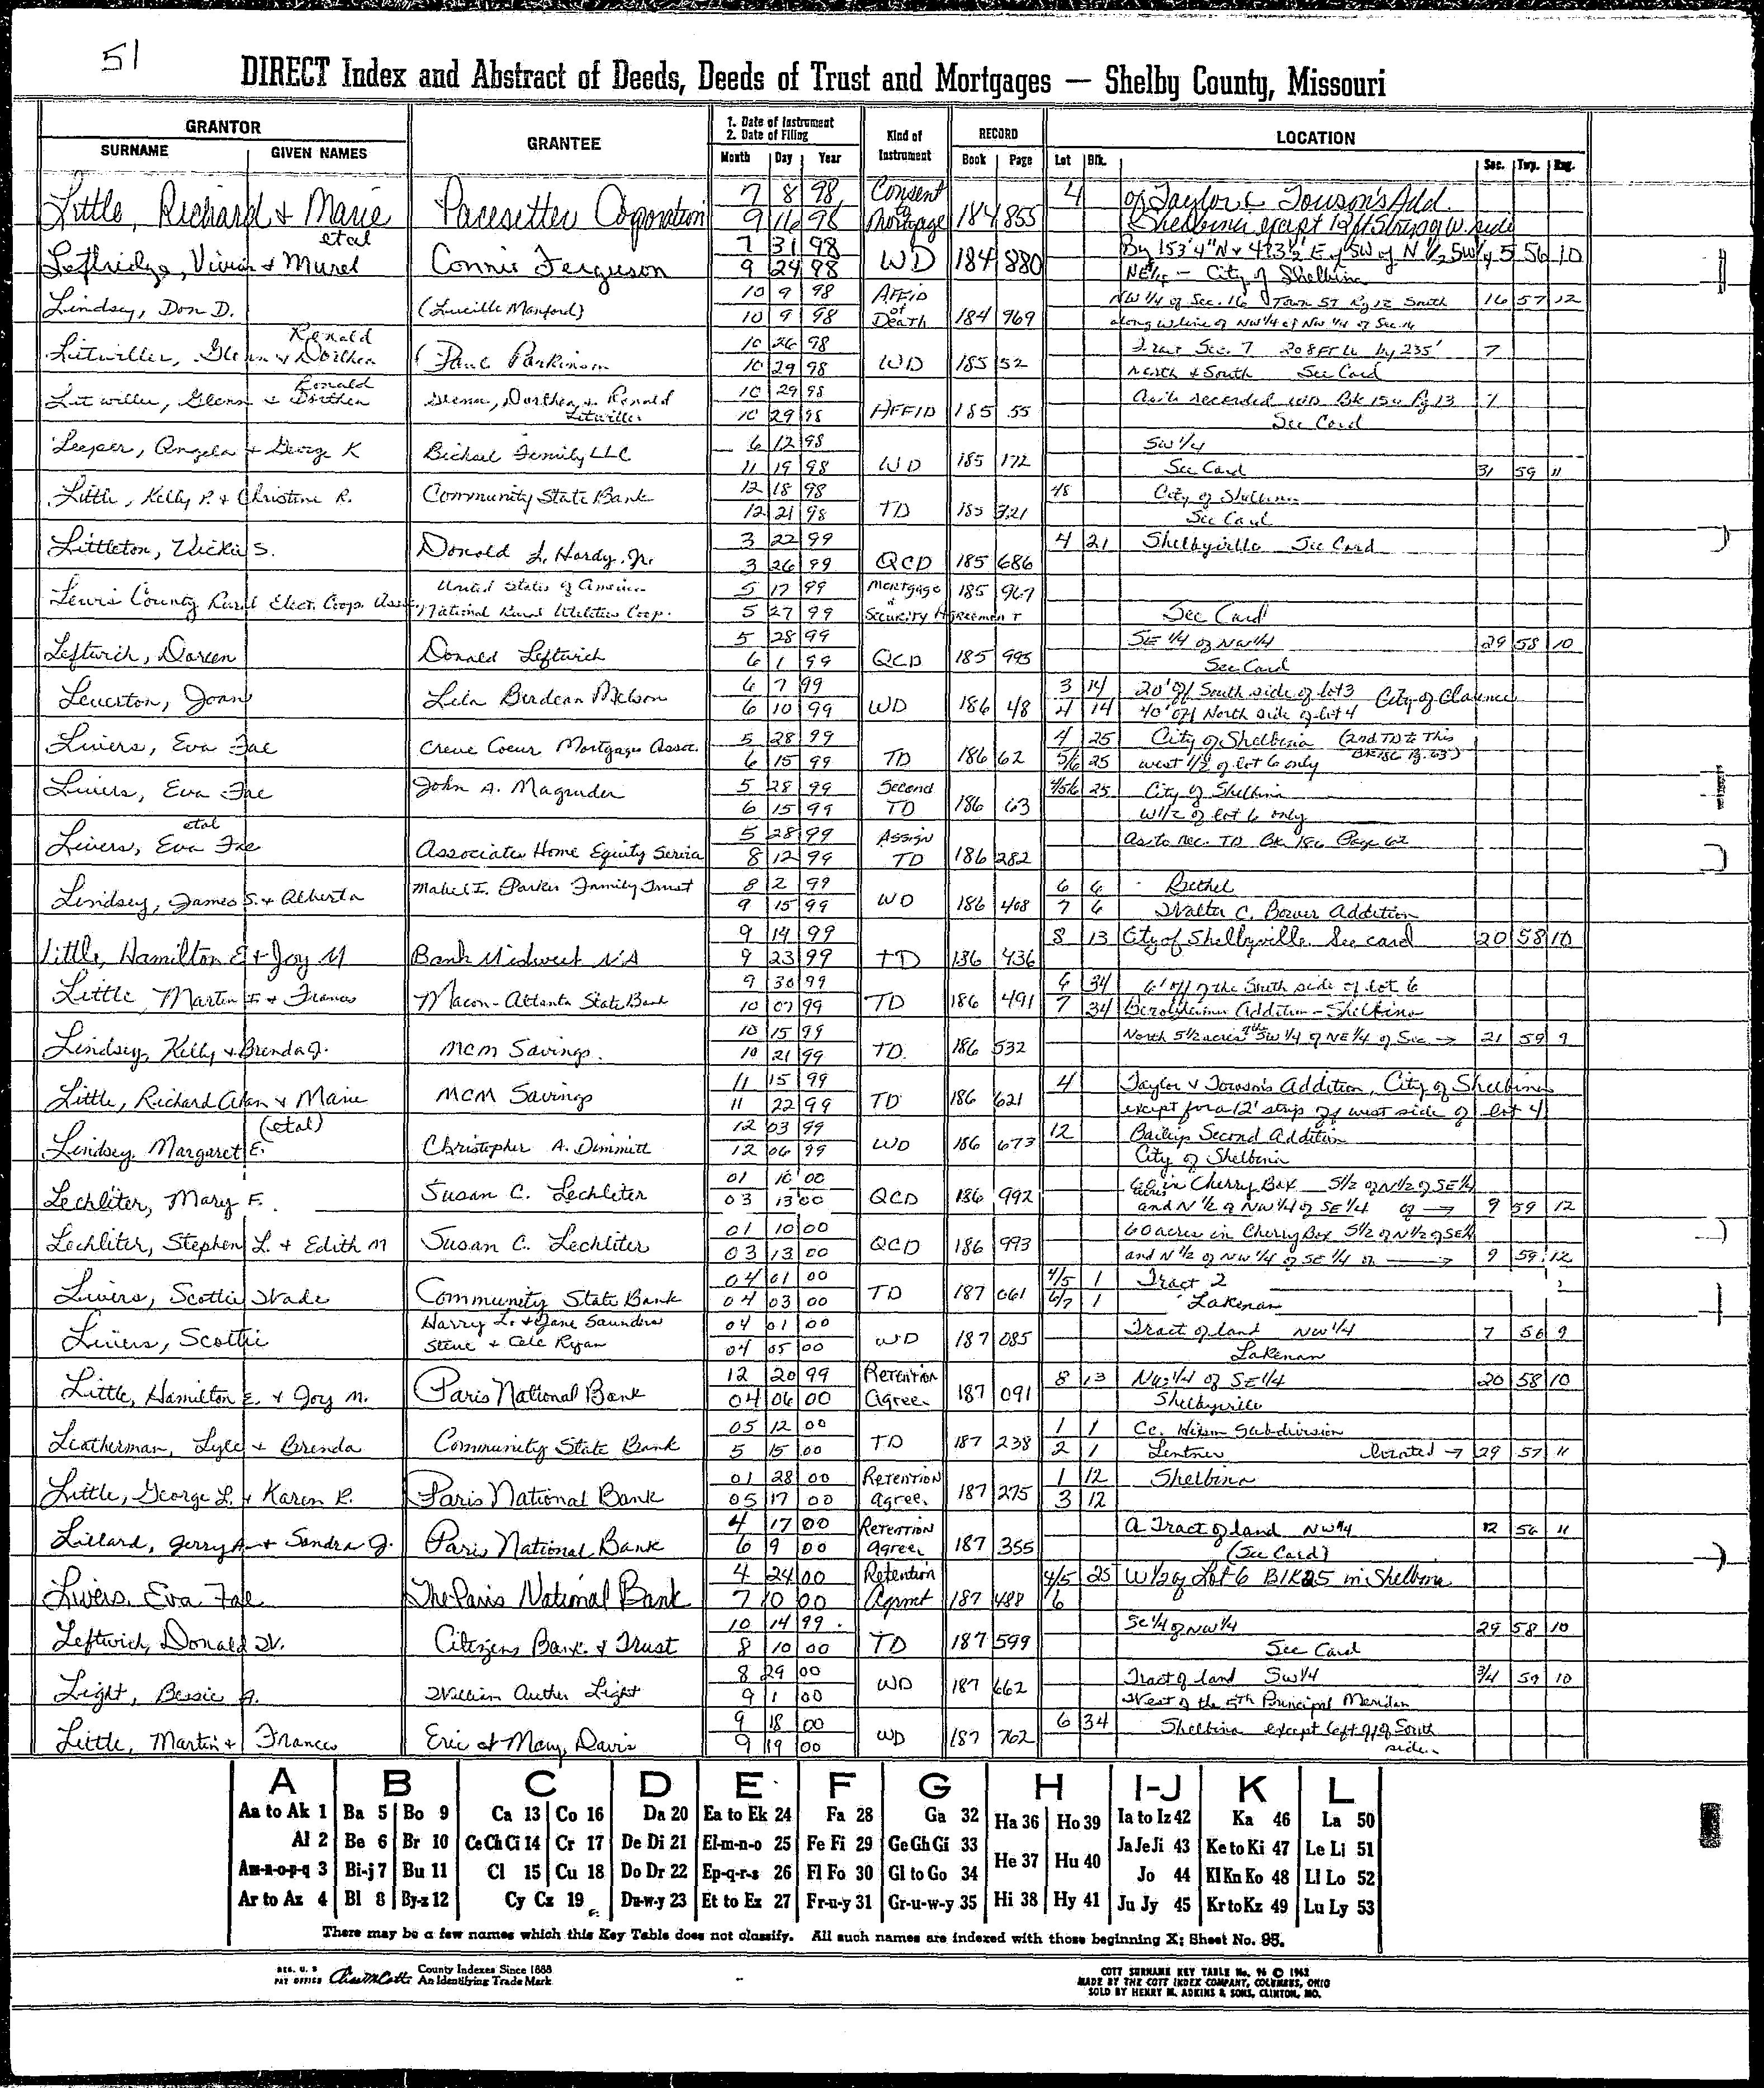 51
DIRECT Index and Abstract of Deeds, Deeds of Trust and Mortgages — Shelby County, Missouri
GRANTOR SURNAME GIVEN NAMES GRANTEE 1. Date of Instrument 2. Date of Filing Month Day Year Kind of Instrument RECORD Book Page LOCATION Lot Blk. Sec. Twp. Rng.
Little, Richard & Marie Pacesetter Coporation 7 8 98 Consent to Mortgage 4 of Taylor & Towson's Add.
9 16 98 184 855 Shelbina except 12 ft Strip of W. side
etal 7 31 98 By 153'4"N & 473½' E of SW of N ½ SW¼ 5 56 10
Leftridge, Vivian & Murel Connie Ferguson 9 24 98 WD 184 880 NE¼ — City of Shelbina
Lindsey, Don D. (Lucille Manford) 10 9 98 AFFID of Death NW ¼ of Sec. 16 Town 57 Rg 12 South 16 57 12
10 9 98 184 969 along W line of NW ¼ of NW ¼ of Sec. 16
Ronald
Litwiller, Glenn & Dorthea Paul Parkinson 10 26 98 WD 185 52 Sec. 7 208 Ft by 235' 7
10 29 98 North & South See Card
Ronald
Litwiller, Glenn & Dorthea Glenn, Dorthea & Ronald Litwiller 10 29 98 AFFID 185 55 recorded WD Bk 150 Pg 13 7
10 29 98 See Card
Leeper, Angela & George K Bichsel Family LLC 6 12 98 SW ¼
11 19 98 WD 185 172 See Card 31 59 11
Little, Kelly P. & Christine R. Community State Bank 12 18 98 City of Shelbina
12 21 98 TD 185 321 See Card
Littleton, Vickie S. Donald L. Hardy, Jr. 3 22 99 4 21 Shelbyville See Card
3 26 99 QCD 185 686
Lewis County Rural Elect. Coop. Assn. United States of America 5 17 99 Mortgage & 185 967
National Rural Utilities Coop. 5 27 99 Security Agreement See Card
Leftwich, Doreen Donald Leftwich 5 28 99 SE ¼ of NW ¼ 29 58 10
6 1 99 QCD 185 995 See Card
Leverton, Joan Lela Berdean Nelson 6 7 99 3 14 20' off South side of lot 3 City of Clarence
6 10 99 WD 186 48 4 14 40' off North side of lot 4
Livers, Eva Fae Creve Coeur Mortgage Assoc. 5 28 99 4 25 City of Shelbina (2nd TD to This BK 186 Pg. 63)
6 15 99 TD 186 62 5/6 25 west ½ of lot 6 only
Livers, Eva Fae John A. Magruder 5 28 99 Second 4/5/6 25 City of Shelbina
6 15 99 TD 186 63 W 1/2 of lot 6 only
etal
Livers, Eva Fae Associates Home Equity Service 5 28 99 Assign As to Rec. TD Bk 186 Page 62
8 12 99 TD 186 282
Lindsey, James S. & Alberta Mabel I. Parker Family Trust 8 2 99 6 6 Bethel
9 15 99 WD 186 408 7 6 Walter C. Bower Addition
Little, Hamilton E & Joy M Bank Midwest NA 9 14 99 8 13 City of Shelbyville See card 20 58 10
9 23 99 TD 186 436
Little, Martin & Frances Macon-Atlanta State Bank 9 30 99 6 34 6' off of the South side of lot 6
10 07 99 TD 186 491 7 34 Addition - Shelbina
Lindsey, Kelly & Brenda J. MCM Savings 10 15 99 North 5½ acres of the SW ¼ of NE ¼ of Sec → 21 59 9
10 21 99 TD. 186 532
Little, Richard Alan & Marie MCM Savings 11 15 99 4 Taylor & Towson's Addition, City of Shelbina
11 22 99 TD 186 621 except for a 12' strip off west side of lot 4
(etal)
Lindsey, Margaret E. Christopher A. Dimmitt 12 03 99 12 Bailey's Second Addition
12 06 99 WD 186 673 City of Shelbina
Lechliter, Mary F. Susan C. Lechliter 01 10 00 60 acres in Cherry Box S½ of N½ of SE¼
03 13 00 QCD 186 992 and N ½ of NW ¼ of SE ¼ of → 9 59 12
Lechliter, Stephen L. & Edith M Susan C. Lechliter 01 10 00 60 acres in Cherry Box S½ of N½ of SE¼
03 13 00 QCD 186 993 and N ½ of NW ¼ of SE ¼ of → 9 59 12
Livers, Scottie Wade Community State Bank 04 01 00 4/5 1 Tract 2
04 03 00 TD 187 061 6/7 1 Lakenan
Livers, Scottie Harry L. & Jane Saunders 04 01 00 Tract of land NW ¼ 7 56 9
Steve & Cele Ryan 04 05 00 WD 187 085 Lakenan
Little, Hamilton E. & Joy M. Paris National Bank 12 20 99 Retention 8 13 NW ¼ of SE ¼ 20 58 10
04 06 00 Agree. 187 091 Shelbyville
Leatherman, Lyle & Brenda Community State Bank 05 12 00 1 1 Subdivision
5 15 00 TD 187 238 2 1 Lentner located → 29 57 11
Little, George L. & Karen R. Paris National Bank 01 28 00 Retention 1 12 Shelbina
05 17 00 Agree. 187 275 3 12
Lillard, Jerry A. & Sandra J. Paris National Bank 4 17 00 Retention A Tract of land NW ¼ 12 56 11
6 9 00 Agree 187 355 (See Card)
Livers, Eva Fae The Paris National Bank 4 24 00 Retention 4/5 25 W ½ of Lot 6 BlK 25 in Shelbina
7 10 00 Agrmt 187 488 6
Leftwich, Donald W. Citizens Bank & Trust 10 14 99 SE ¼ of NW ¼ 29 58 10
8 10 00 TD 187 599 See Card
Light, Bessie A. William Auther Light 8 29 00 Tract of land SW ¼ 3/4 59 10
9 1 00 WD 187 662 West of the 5th Principal Meridian
Little, Martin & Frances Eric & Mary Davis 9 18 00 6 34 Shelbina except 6 ft off of South side
9 19 00 WD 187 762
A B C D E F G H I-J K L
Aa to Ak 1 Ba 5 Bo 9 Ca 13 Co 16 Da 20 Ea to Ek 24 Fa 28 Ga 32 Ha 36 Ho 39 Ia to Iz 42 Ka 46 La 50
Al 2 Be 6 Br 10 Ce Ch Ci 14 Cr 17 De Di 21 El-m-n-o 25 Fe Fi 29 Ge Gh Gi 33 He 37 Hu 40 Ja Je Ji 43 Ke to Ki 47 Le Li 51
Am-n-o-p-q 3 Bi-j 7 Bu 11 Cl 15 Cu 18 Do Dr 22 Ep-q-r-s 26 Fl Fo 30 Gl to Go 34 Jo 44 Kl Kn Ko 48 Ll Lo 52
Ar to Az 4 Bl 8 By-z 12 Cy Cz 19 Du-w-y 23 Et to Ez 27 Fr-u-y 31 Gr-u-w-y 35 Hi 38 Hy 41 Ju Jy 45 Kr to Kz 49 Lu Ly 53
There may be a few names which this Key Table does not classify. All such names are indexed with those beginning X; Sheet No. 95.
REG. U. S. PAT OFFICE County Indexes Since 1888 An Identifying Trade Mark
COTT SURNAME KEY TABLE No. 96 © 1962
MADE BY THE COTT INDEX COMPANY, COLUMBUS, OHIO
SOLD BY HENRY M. ADKINS & SONS, CLINTON, MO.